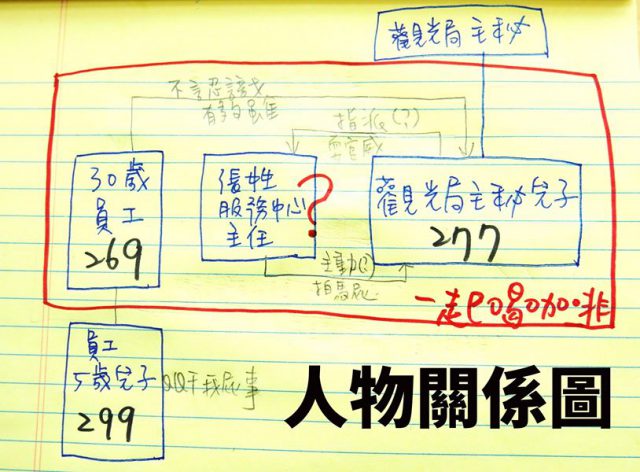 觀光局主秘
不認識
有夠雖
指派(?)
耍官威
30歲
員工
269
個性
服務中心
主任
?
觀光局主秘兒子
277
主動(?)
拍馬屁
一起喝咖啡
員工
5歲兒子
299
QQ干我屁事
人物關係圖